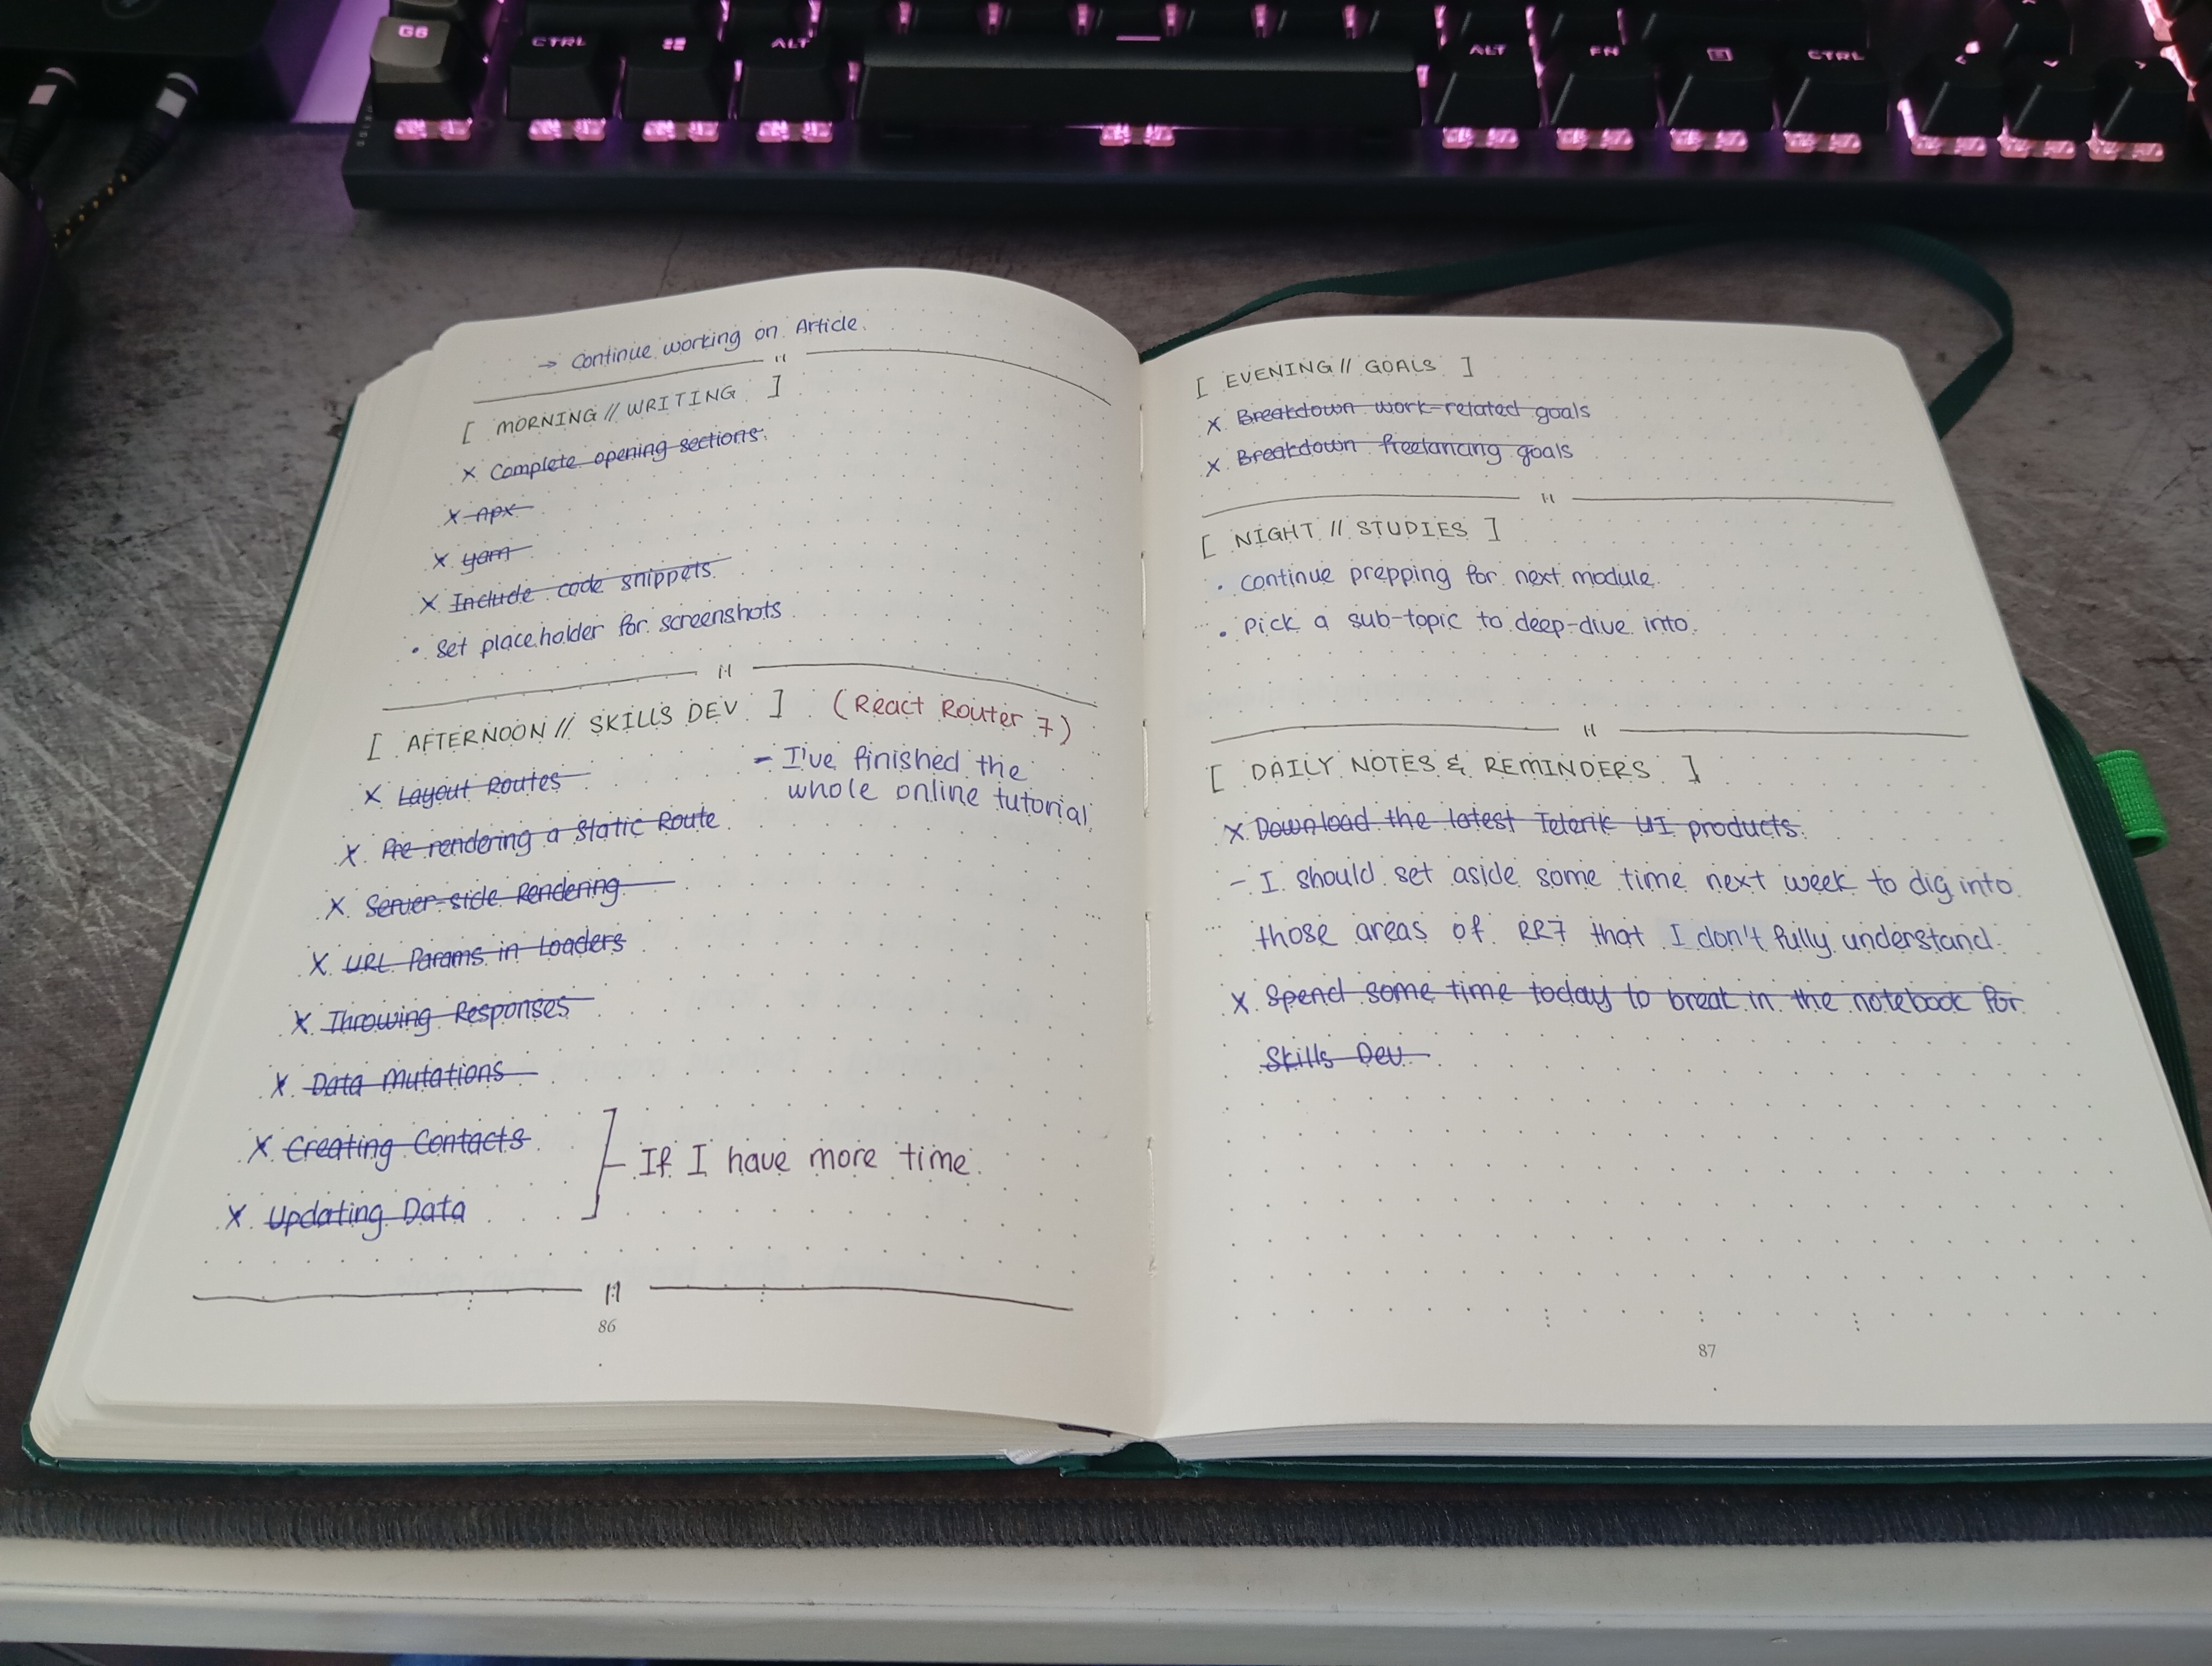 G6
CTRL
ALT
ALT
FN
CTRL
→ Continue working on Article.
[ MORNING // WRITING ]
x Complete opening sections.
x npx
x yarn
x Include code snippets.
• Set placeholder for screenshots
[ AFTERNOON // SKILLS DEV ] (React Router 7)
- I've finished the
whole online tutorial.
x Layout Routes
x Pre-rendering a Static Route
x Server-side Rendering
x URL Params in Loaders
x Throwing Responses
x Data Mutations
x Creating Contacts
- If I have more time.
x Updating Data
86
[ EVENING // GOALS ]
x Breakdown work-related goals
x Breakdown freelancing goals
[ NIGHT // STUDIES ]
• Continue prepping for next module.
• Pick a sub-topic to deep-dive into.
[ DAILY NOTES & REMINDERS ]
x Download the latest Telerik UI products.
- I should set aside some time next week to dig into
those areas of RR7 that I don't fully understand.
x Spend some time today to break in the notebook for
Skills Dev
87